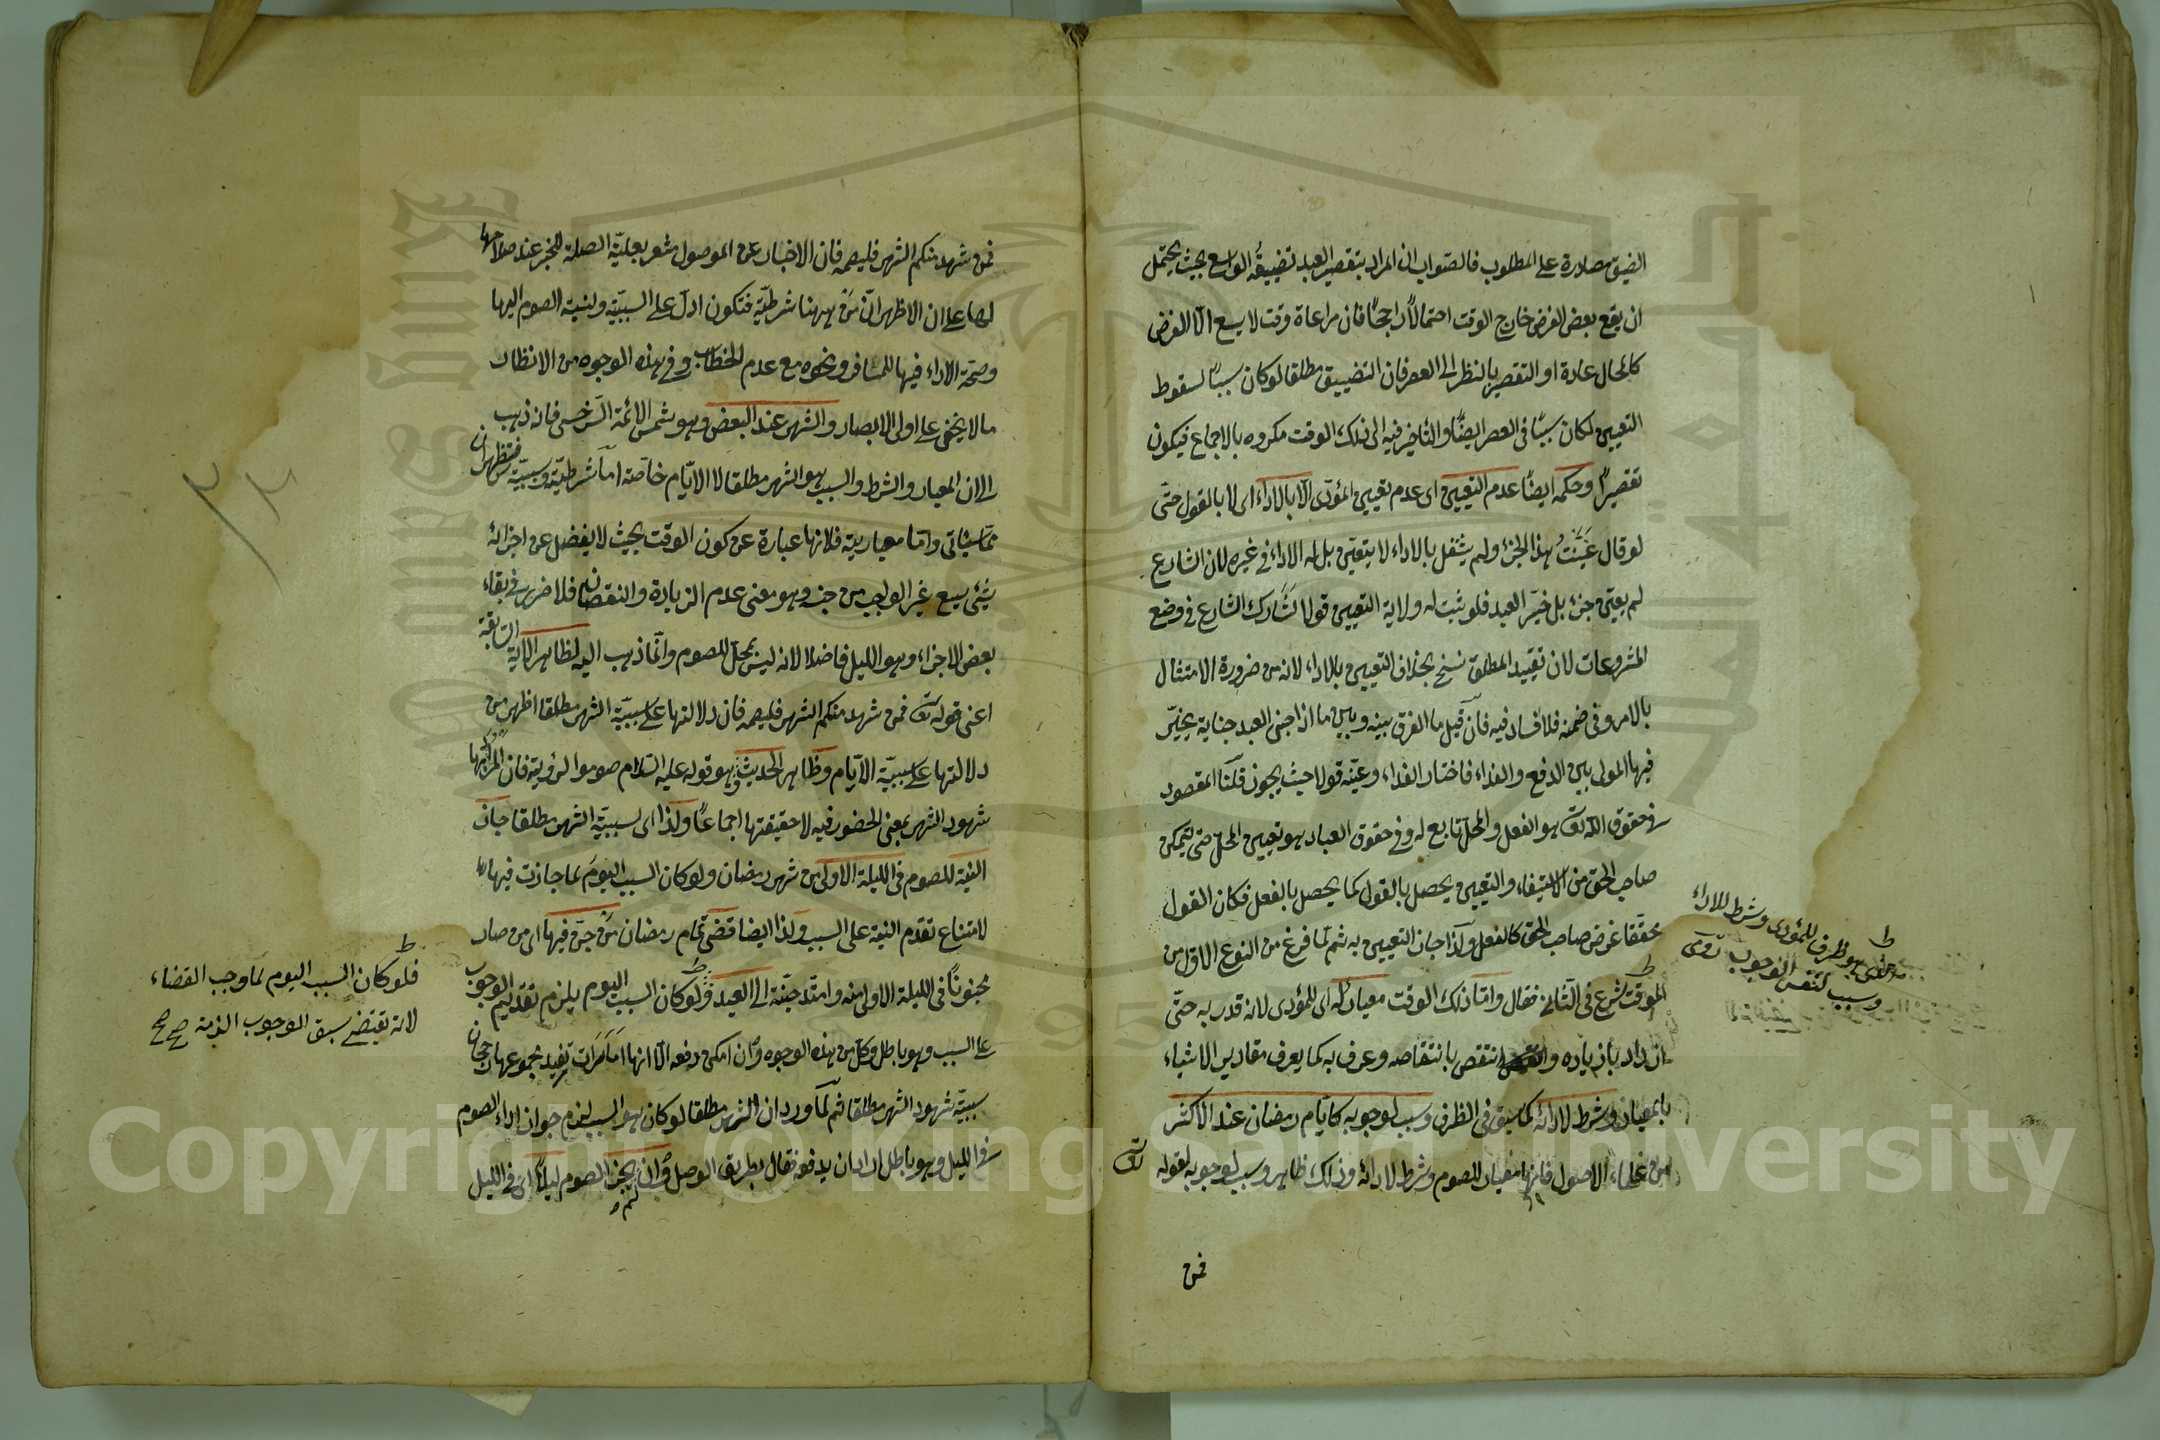 الضيق مصادرة على المطلوب فالصواب ان المراد بتقصير العبد تضييقه الواسع بحيث يحتمل
ان يقع بعض الفرض خارج الوقت احتمالا راجحا فان مراعاة وقت لا يسع الا الفرض
كالمحال عادة او التقصير بالنظر الى العصر فان التضييق مطلقا لو كان سببا لسقوط
التعيين لكان سببا في العصر ايضا والتأخير فيه الى ذلك الوقت مكروه بالاجماع فيكون
تقصيرا وحكمه ايضا عدم التعيين اى عدم تعيين المؤدى الا بالاداء اى لا بالقول حتى
لو قال عينت هذا الجزء ولم يشتغل بالاداء لا يتعين بل له الاداء في غيره لان الشارع
لم يعين جزء بل خير العبد فلو ثبت له ولاية التعيين قولا لشارك الشارع في وضع
المشروعات لان تقييد المطلق نسخ بخلاف التعيين بالاداء لانه من ضرورة الامتثال
بالامر وفى ضمنه فلا فساد فيه فان قيل ما الفرق بينه وبين ما اذا جنى العبد جناية يخير
فيها المولى بين الدفع والفداء فاختار الفداء وعينه قولا حيث يجوز قلنا المقصود
في حقوق الله تع هو الفعل والمحل تابع له وفي حقوق العباد هو تعيين المحل حتى يتمكن
صاحب الحق من الاستيفاء والتعيين يحصل بالقول كما يحصل بالفعل فكان القول
محققا غرض صاحب الحق كالفعل ولذا جاز التعيين به ثم لما فرغ من النوع الاول من
الموقت شرع في الثانى فقال واما ذلك الوقت معيار له اى للمؤدى لانه قدر به حتى
ازداد بازدياده وانتقص بانتقاصه وعرف به كما يعرف مقادير الاشياء
بالمعيار وشرط لادائه لما سبق في الظرف وسبب لوجوبه كايام رمضان عند الاكثر
من علماء الاصول فانها معيار الصوم وشرط لادائه وذلك ظاهر وسبب لوجوبه لقوله
تع
فمن
هو ظرف للمؤدى وشرط للاداء
وسبب لنفس الوجوب
فمن شهد منكم الشهر فليصمه فان الاخبار عن الموصول مشعر بعلية الصلة للخبر عند صلاحها
لها على ان الاظهر ان من ههنا شرطية فتكون ادل على السببية ونسبة الصوم اليها
وصحة الاداء فيها للمسافر ونحوه مع عدم الخطاب وفي هذه الوجوه من الانظار
ما لا يخفى على اولى الابصار والشهر عند البعض وهو شمس الائمة السرخسى فانه ذهب
الى ان المعيار والشرط والسبب هو الشهر مطلقا لا الايام خاصة اما شرطية وسببية فتظهران
مما سيأتى واما معياريته فلانها عبارة عن كون الوقت بحيث لا يفضل عن اجزائه
شئ يسع غير الواجب من جنسه وهو معنى عدم الزيادة والنقصان فلا ضرر في بقاء
بعض الاجزاء وهو الليل فاضلا لانه ليس بمحل للصوم وانما ذهب اليه لظاهر الآية السابقة
اعنى قوله تع فمن شهد منكم الشهر فليصمه فان دلالتها على سببية الشهر مطلقا اظهر من
دلالتها على سببية الايام وظاهر الحديث وهو قوله عليه السلام صوموا لرؤيته فان المراد بها
شهود الشهر بمعنى الحضور فيه لا حقيقتها اجماعا ولذا اى لسببية الشهر مطلقا جاز
النية للصوم في الليلة الاولى من شهر رمضان ولو كان السبب اليوم لما جازت فيها
لامتناع تقدم النية على السبب ولذا ايضا قضى تمام رمضان من جن فيها اى من صار
مجنونا في الليلة الاولى منه وامتد جنته الى العيد ولو كان السبب اليوم يلزم تقديم الوجوب
على السبب وهو باطل وكل من هذه الوجوه وان امكن دفعه الا انها امارات تفيد بمجموعها رجحان
سببية شهود الشهر مطلقا ثم لما ورد ان الشهر مطلقا لو كان هو السبب لزم جواز اداء الصوم
في الليل وهو باطل اراد ان يدفعه فقال بطريق الوصل وان لم يجز الصوم ليلا اى في الليل
فلو كان السبب اليوم لما وجب القضاء
لانه يقتضى سبق الوجوب الذمة صح صح
Copyright © King Saud University
1957